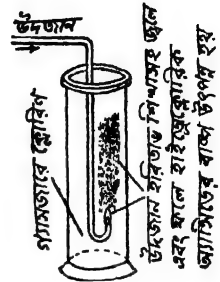 উদজান
গ্যাসজারে ক্লোরিন
উদজান হরিতাভ শিখাসহ জ্বলে
এবং ফলে হাইড্রোক্লোরিক
অ্যাসিডের বাষ্প উৎপন্ন হয়